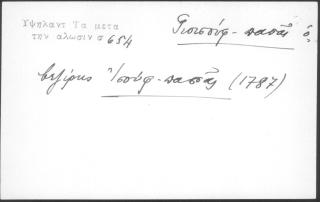 Υψηλαντ Τα μετα
την αλωσιν σ 654
Γιουσούφ-πασᾶς ὁ
βεζίρης Ἰσούφ-πασσᾶς (1787)